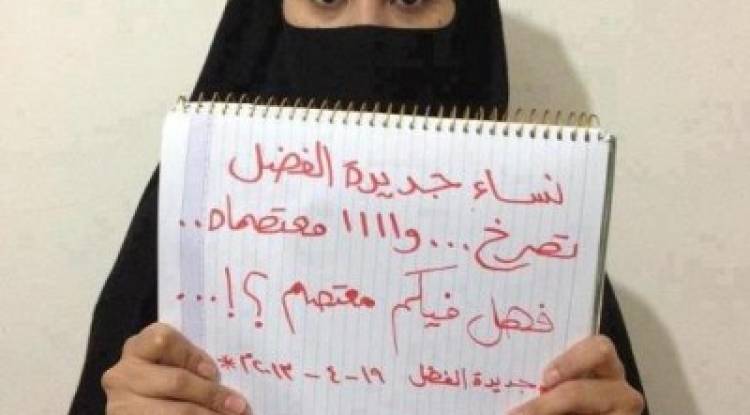 نساء جديدة الفضل
تصرخ...واااا معتصماه..
فهل فيكم معتصم؟!...
*جديدة الفضل ١٩-٤-٢٠١٣*